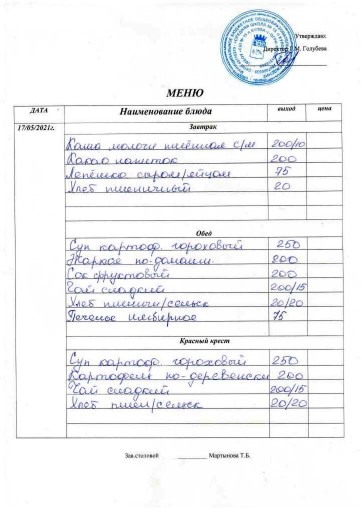 Утверждаю:
Директор Т.М. Голубева
МЕНЮ
ДАТА Наименование блюда выход цена
17/05/2021г. Завтрак
Каша молочн пшённая с/м 200/10
Какао напиток 200
Лепёшка сыром/яйцом 75
Хлеб пшеничный 20
Обед
Суп картоф. гороховый 250
Жаркое по-домашн. 200
Сок фруктовый 200
Чай сладкий 200/15
Хлеб пшеничн/сельск 20/20
Печенье имбирное 75
Красный крест
Суп картоф. гороховый 250
Картофель по-деревенски 200
Чай сладкий 200/15
Хлеб пшен/сельск 20/20
Зав.столовой Мартынова Т.Б.